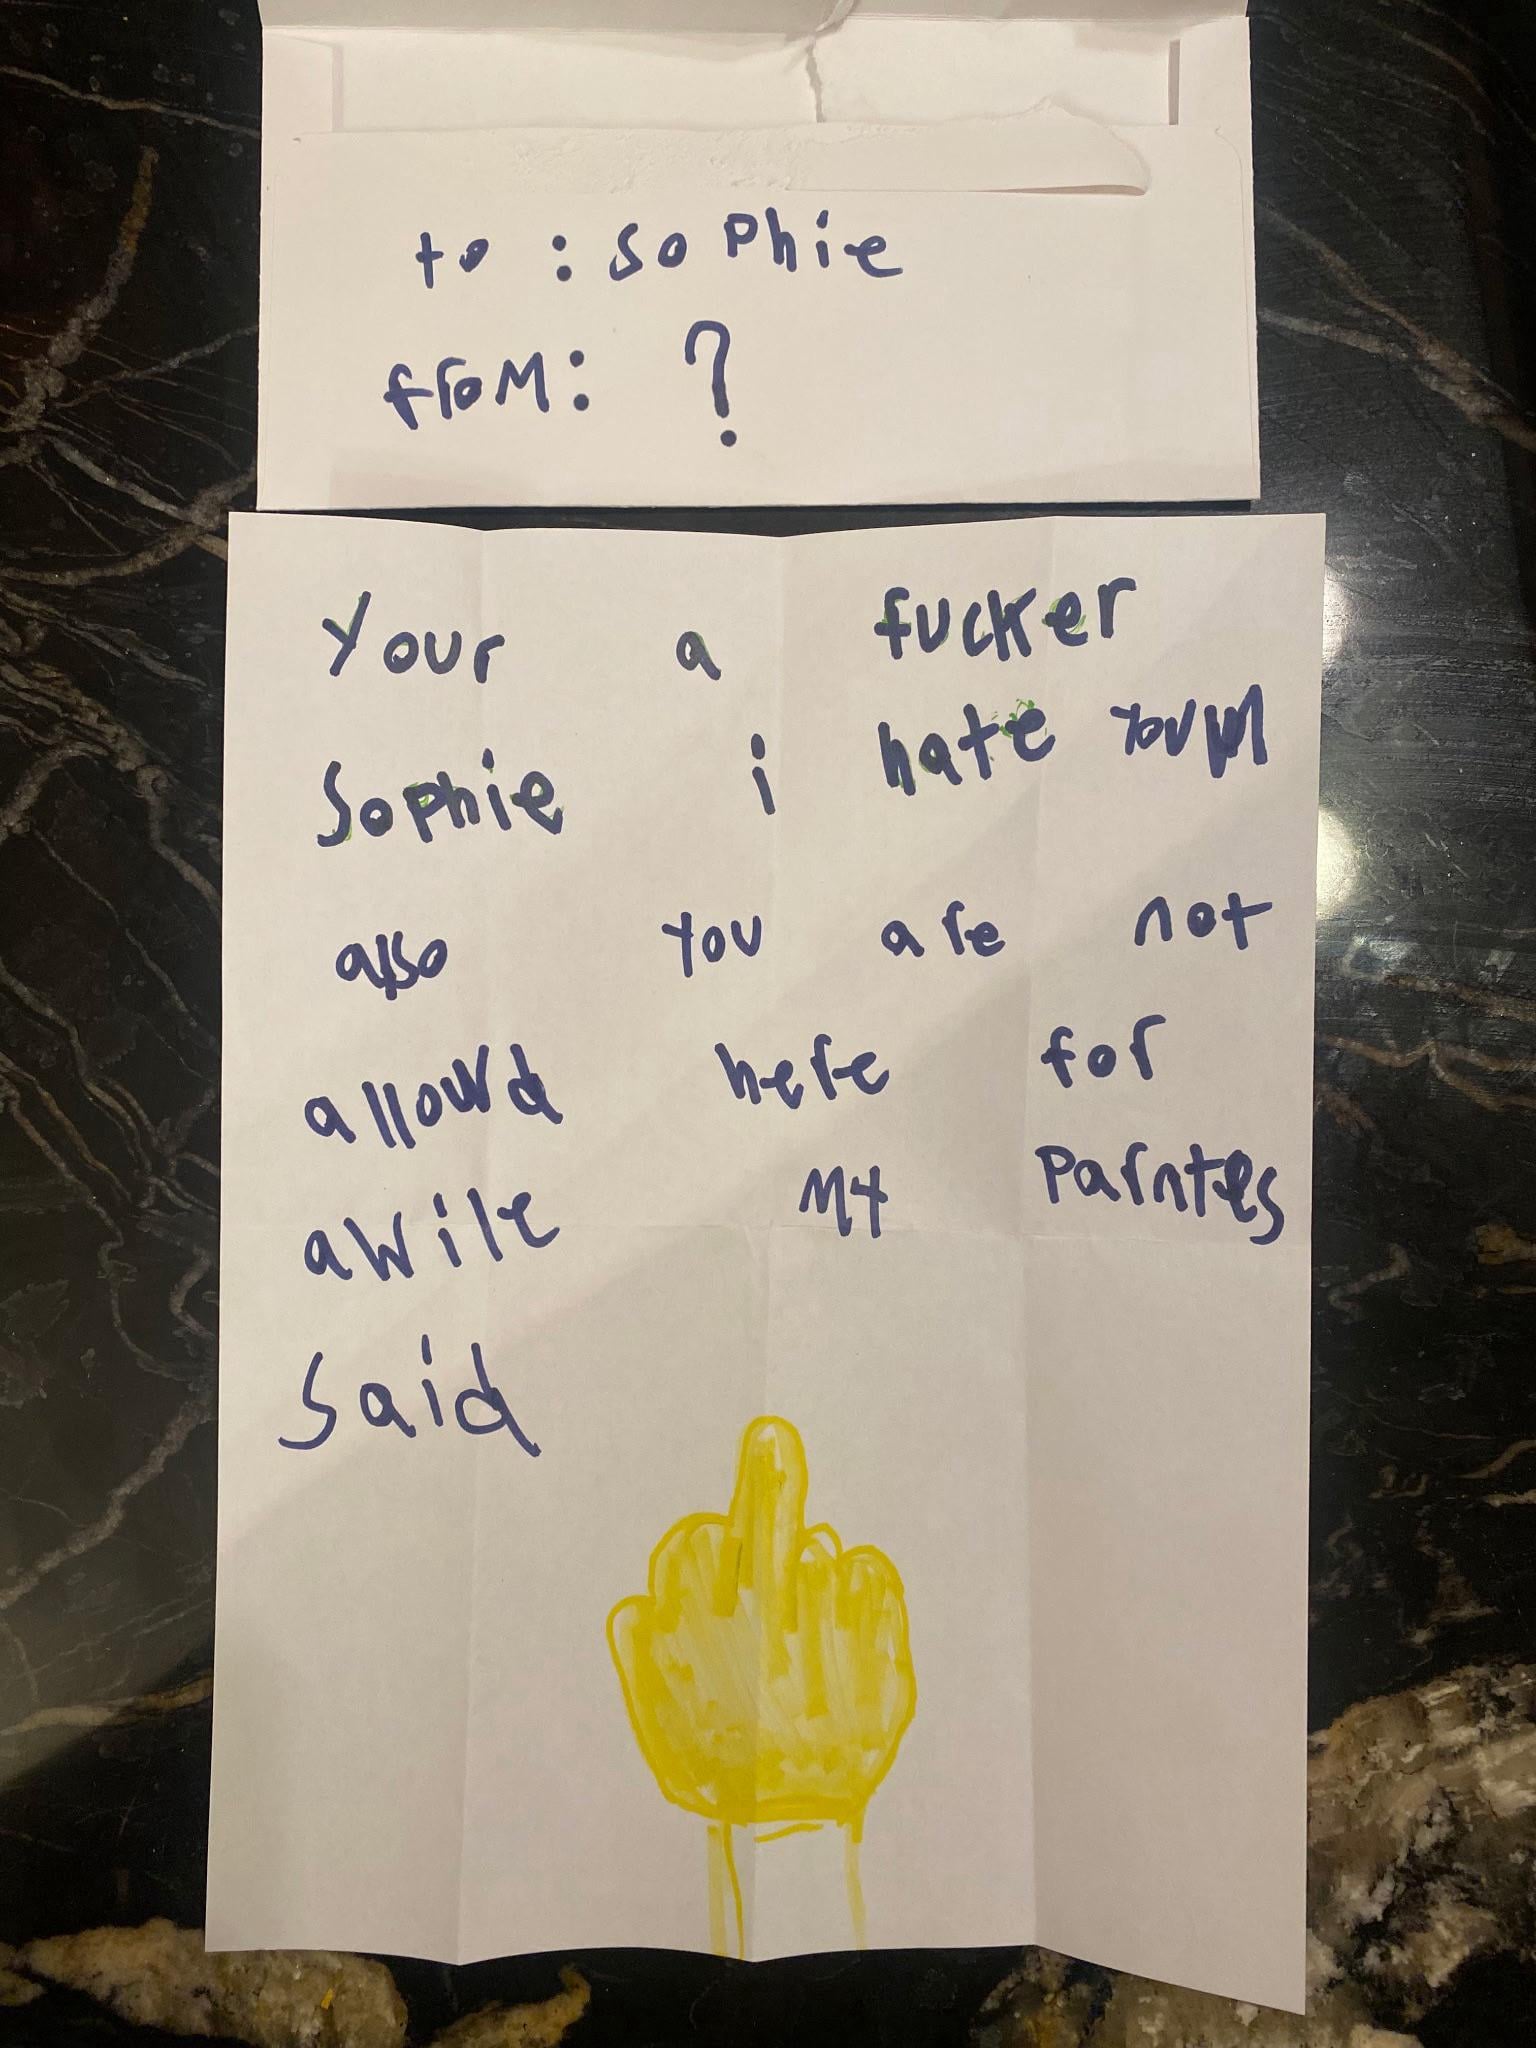 to : sophie
from: ?
Your a fucker
Sophie i hate you
also you are not
allowd here for
awile my parntes
said